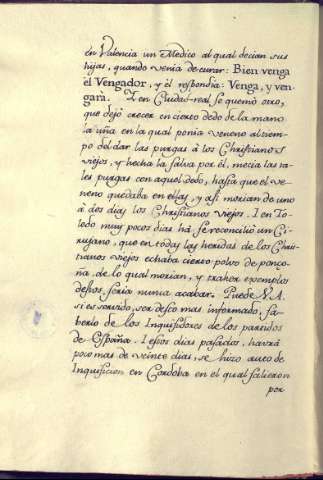 en Valencia un Medico al qual decian sus
hijas, quando venia de curar: Bien venga
el Vengador, y él respondia: Venga, y ven-
gará. I en Ciudad-real se quemó otro,
que dejó crecer en cierto dedo de la mano
la uña en la qual ponia veneno al tiem-
po del dar las purgas á los Christianos
viejos, y hecha la salva por él, mecia las ta-
les purgas con aquel dedo, hasta que el ve-
neno quedaba en ellas, y asi morian de uno
á dos dias los Christianos viejos. I en To-
ledo muy pocos dias há se reconcilió un Ci-
rujano, que en todas las heridas de los Chris-
tianos viejos echaba cierto polvo de ponço-
ña, de lo qual morian, y traher exemplos
destos seria nunca acabar. Puede V.A.
si es servido, ser desto mas informado, sa-
berlo de los Inquisidores de los partidos
de España. I estos dias pasados, havrá
poco mas de veinte dias, se hizo auto de
Inquisicion en Cordoba en el qual salieron
por